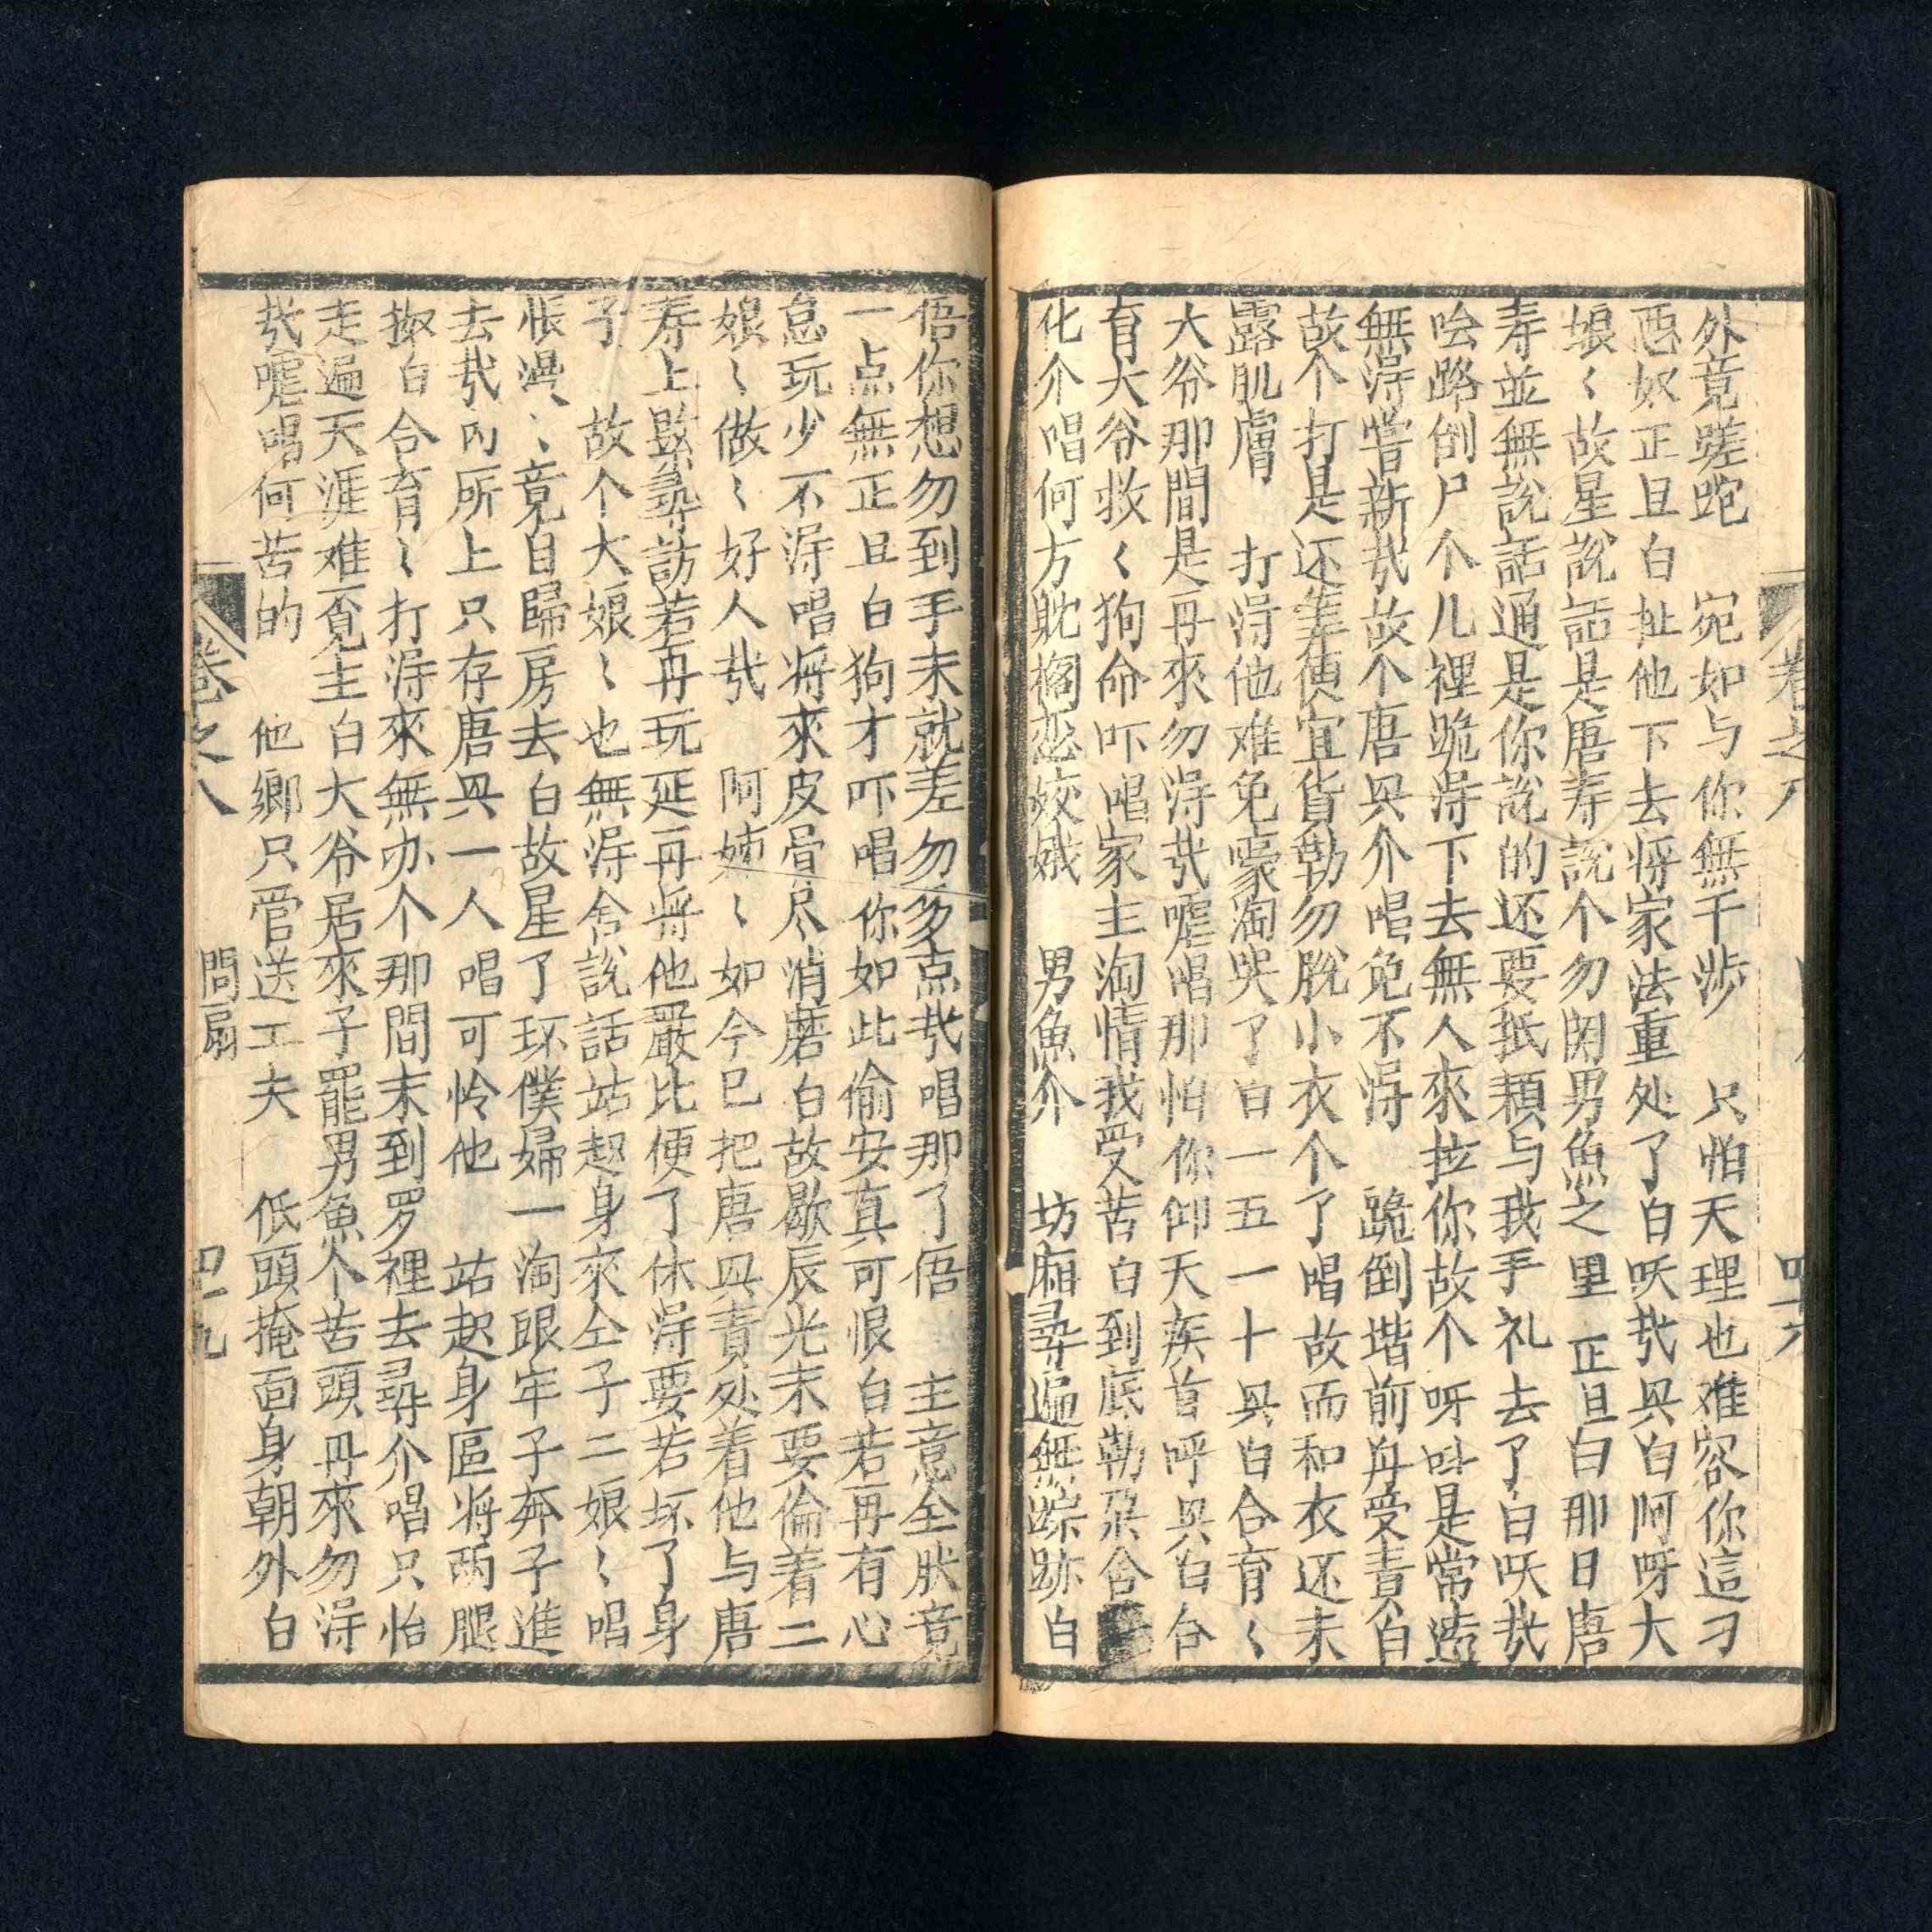 外竟蹉跎　宛如与你無干涉　只怕天理也难容你這刁
惡奴正旦白扯他下去将家法重处了白呅㢤吳白阿呀大
娘〻故星說話是唐寿說个勿関男魚之里正旦白那日唐
寿並無說話通是你說的还要抵頼与我手礼去了白呅㢤
哙路倒尸个儿裡跪淂下去無人來拉你故个呀呌是常遠
無淂嘗新㢤故个唐吳介唱免不淂　跪倒堦前身受責白
故个打是还差便宜貨勒勿脫小衣个了唱故而和衣还未
露肌膚　打淂他难免豪淘哭了白一五一十吳白合育〻
大爷那間是再來勿淂㢤嘘唱那怕你仰天疾首呼吳白合
育大爷救〻狗命吓唱家主淘情我受苦白到底勒朶舍
化介唱何方躭擱恋姣娥　男魚介　坊廂尋遍無踪跡白
卷之八
悟你想勿到手未就差勿多点㢤唱那了悟　主意全肰竟
一点無正旦白狗才吓唱你如此偷安真可恨白若再有心
怠玩少不淂唱将來皮骨尽消磨白故歇辰光末要倫着二
娘〻做〻好人㢤　阿姊〻如今已把唐吳責处着他与唐
寿上𦂳尋訪若再玩延再将他嚴比便了休淂要若坏了身
子　故个大娘〻也無淂舍說話站起身來仝子二娘〻唱
悵漫〻竟自歸房去白故星了环僕婦一淘眼牢子奔子進
去㢤內所上只存唐吳一人唱可怜他　站起身區将两腿
挀白合育〻打淂來無办个那間末到罗裡去尋介唱只怡
走遍天涯难覓主白大爷居來子罷男魚个苦頭再來勿淂
㢤嘘唱何苦的　他鄉只管送工夫　低頭掩面身朝外白
卷之八　問扇　四十九